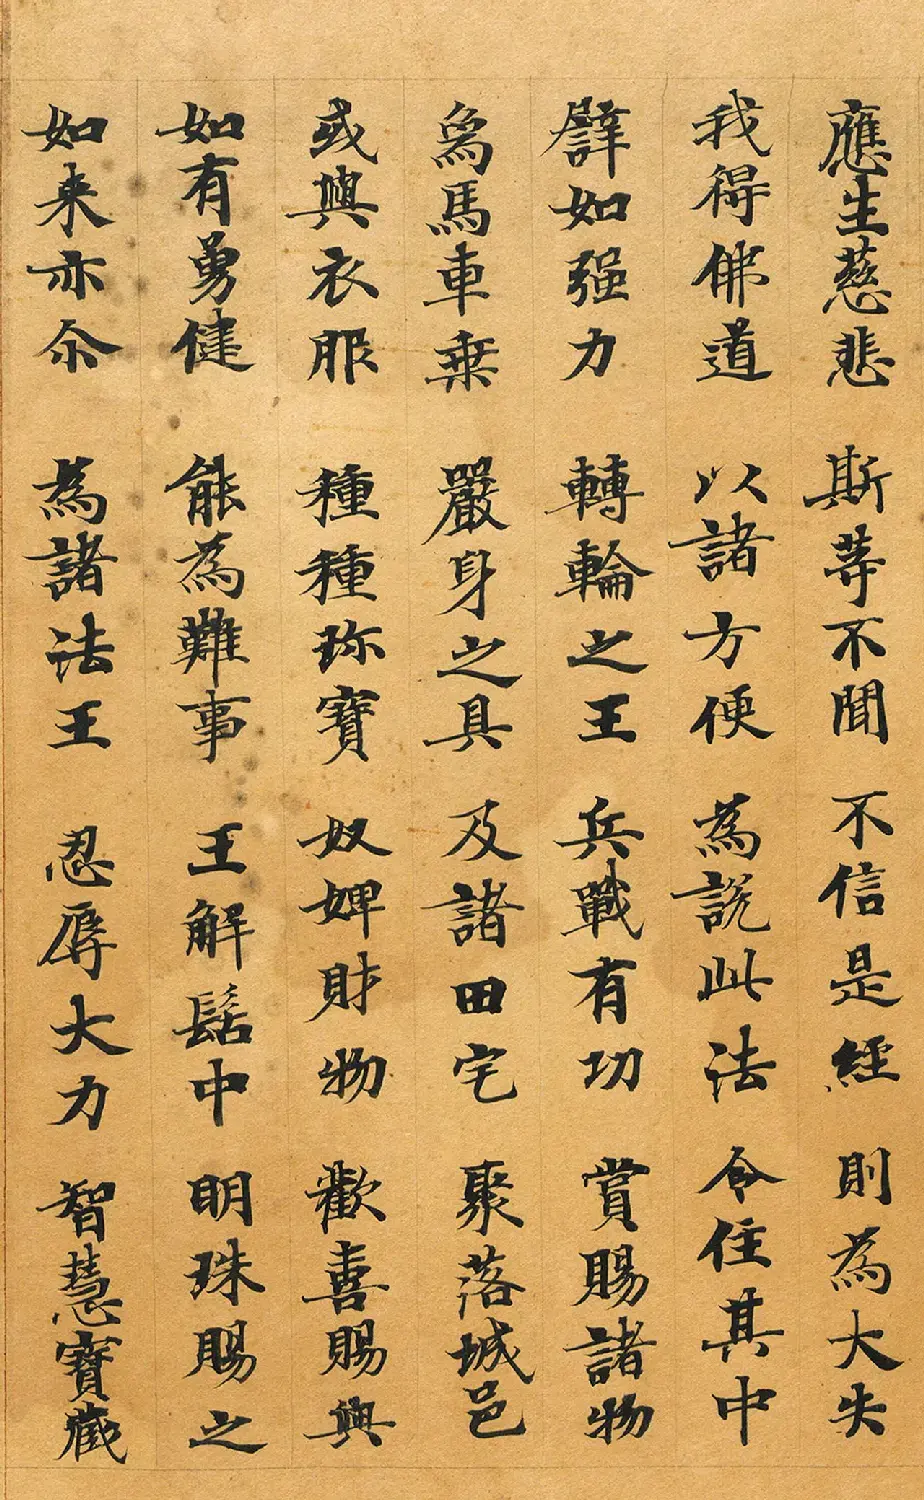 應生慈悲 斯等不聞 不信是經 則為大失
我得佛道 以諸方便 為說此法 令住其中
譬如强力 轉輪之王 兵戰有功 賞賜諸物
爲馬車乗 嚴身之具 及諸田宅 聚落城邑
或與衣服 種種珎寶 奴婢財物 歡喜賜與
如有勇健 能為難事 王解髻中 明珠賜之
如来亦尒 為諸法王 忍辱大力 智慧寶藏